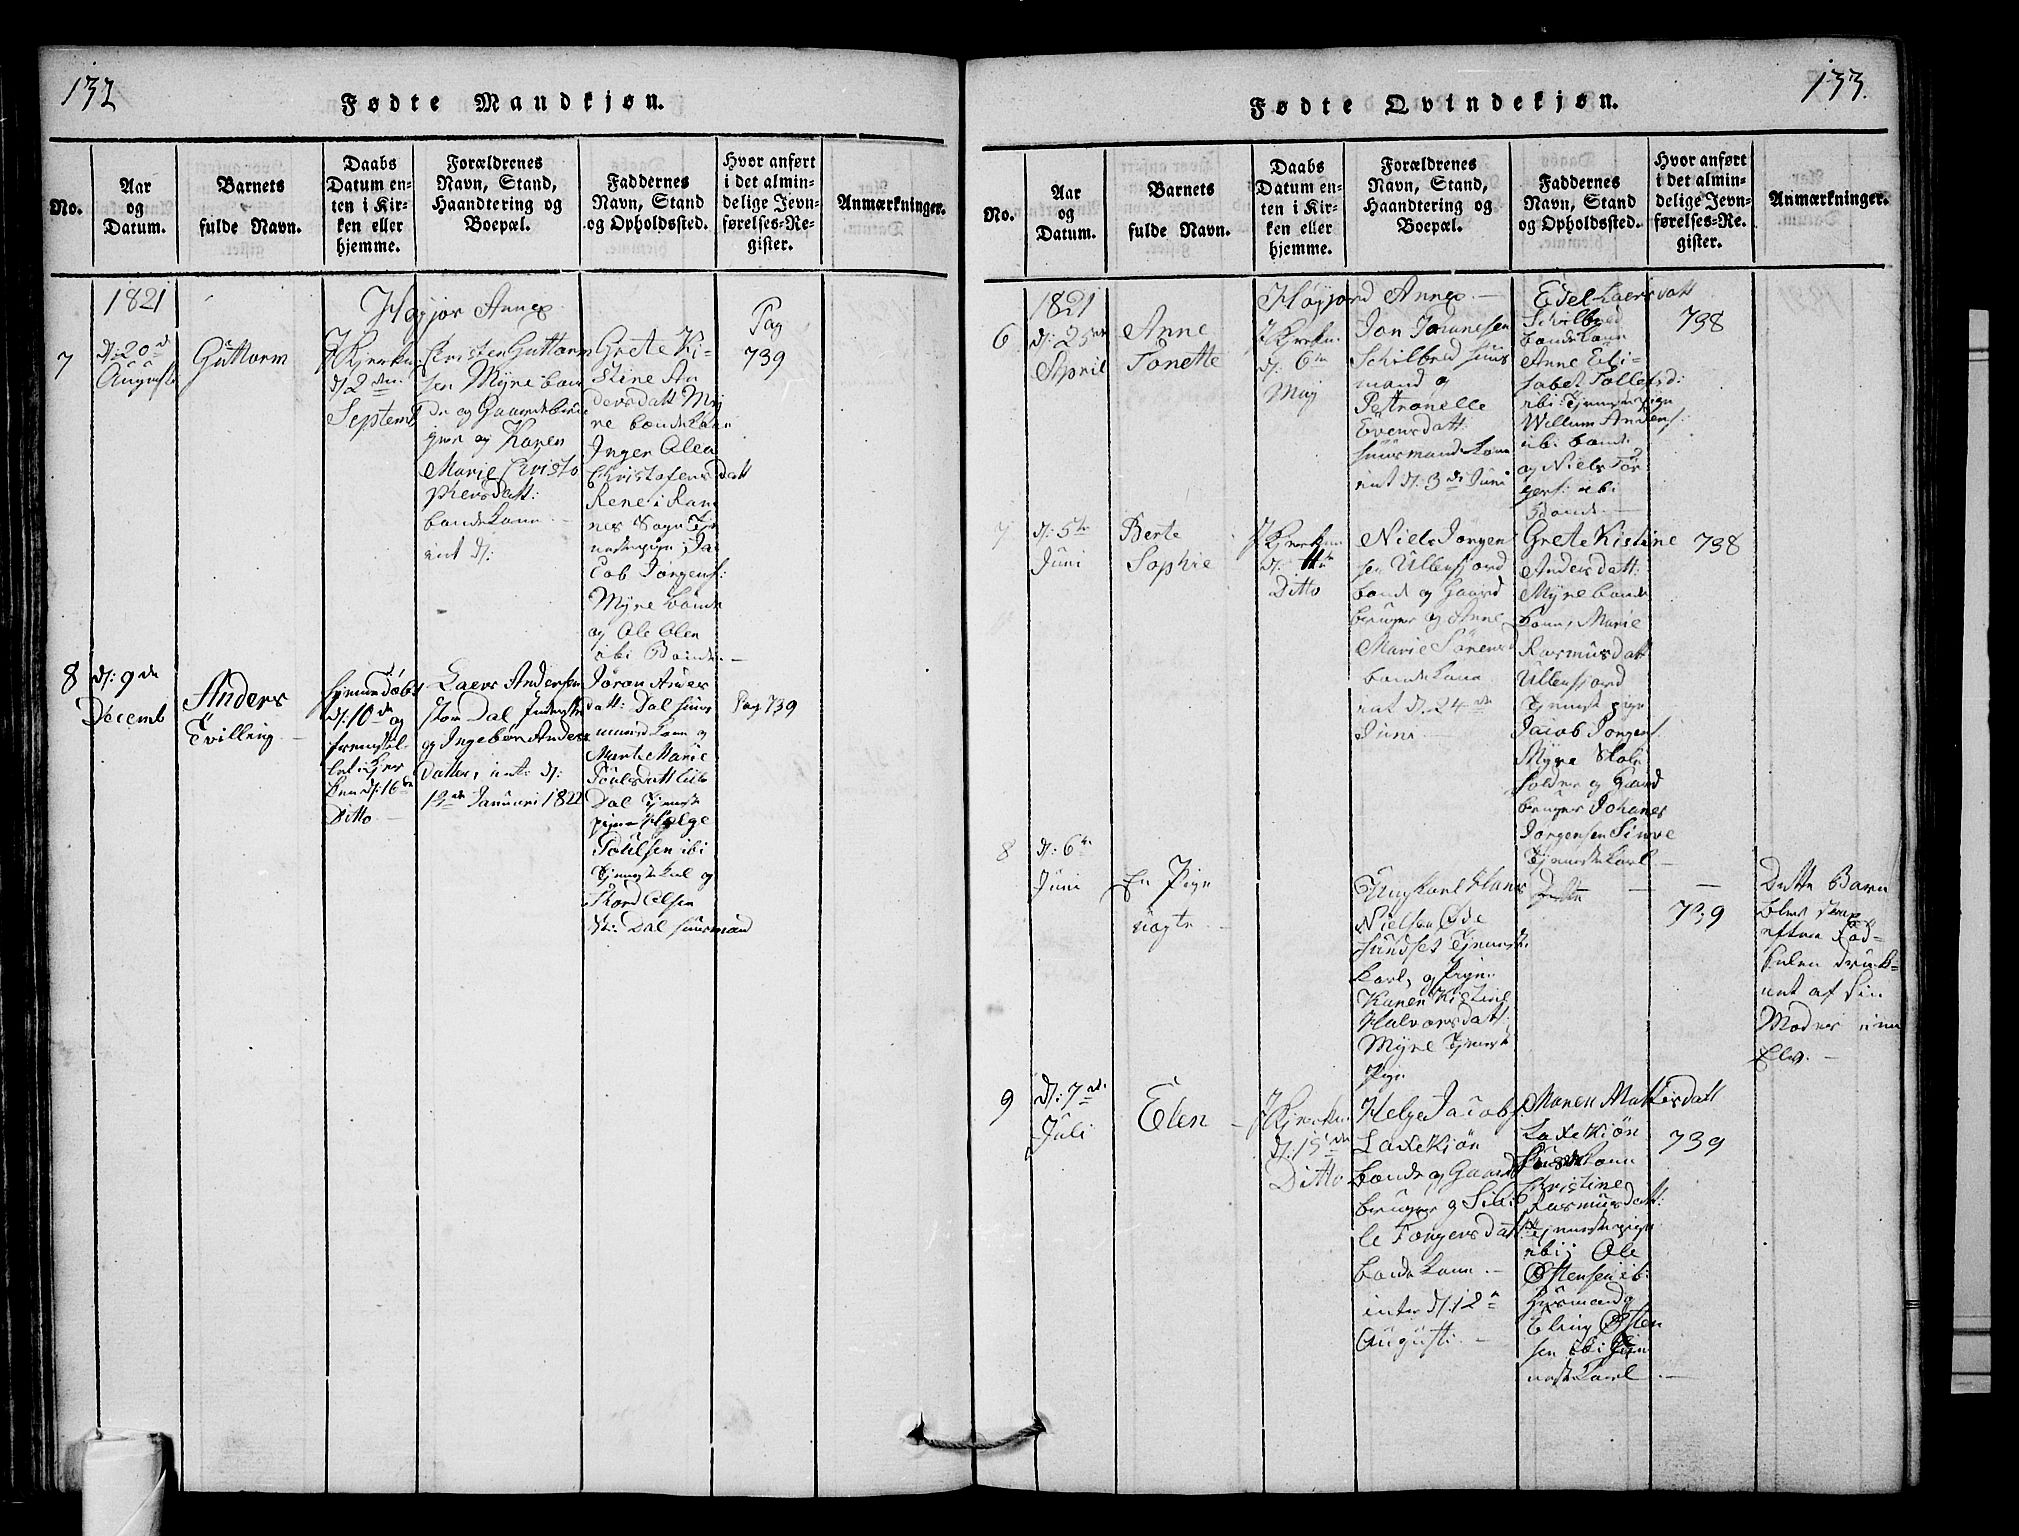 132
Fødte Mandkjøn.
No.
Aar
og
Datum.
Barnets
fulde Navn.
Daabs
Datum en-
ten i Kir-
ken eller
hjemme.
Forældrenes
Navn, Stand,
Haandtering og
Boepæl.
Faddernes
Navn, Stand
og Opholdssted.
Hvor anført
i det almin-
delige Jevn-
førelses-Re-
gister.
Anmærkninger.
1821
Annex
Pag
7
d: 20
Augusti
Guttorm
d: 2den
Septemb
Christen Guttorm
sen Myre bon
de og Gaardbru
ger og Karen
Marie Christo
phersdatt:
bondekone
int d:
Grete Ki-
stine An
dersdatt My
re bondekone
Inger Olea
Christofersdatt
Rene i Ram
nes Sogn Tje
nestepige, Ja
cob Jørgens:
Myre bonde
og Ole Olen
ibi Bonde
739
8
d: 9de
Decemb
Anders
Evilling
hjemmedøbt
d: 10de og
fremstil
let i Kir
ken d: 16de
Ditto
Laers Andersen
Stor Dal
og Ingebor Anders
Datter, int: d:
13de Januari 1822
Jøran Anders
datt: Dal huus
mandskone og
Marte Marie
Poulsdatt ibi
Dal Tjeneste
pige Helge
Poulsen ibi
Tjenestekarl og
Thord Olsen
St: Dal huusmand
Pag 739
133.
Fødte Qvindekjøn.
No.
Aar
og
Datum.
Barnets
fulde Navn.
Daabs
Datum en-
ten i Kir-
ken eller
hjemme.
Forældrenes
Navn, Stand,
Haandtering og
Boepæl.
Faddernes
Navn, Stand
og Opholdssted.
Hvor anført
i det almin-
delige Jevn-
førelses-Re-
gister.
Anmærkninger.
1821
Høyjord Annex
6
d: 25de
April
Anne
Tonette
I Kirken
d: 6te
Maj
Jon Johannesen
Schilbred huus
mand og
Petronelle
Evensdatt:
huusmandskone
int d: 3de Juni
Edel Laersdatt
Schilbred
bondekone
Anne Eli-
sabet Tollefsd:
ibi: Tjenestepige
Willum Anders:
ibi bonde
og Niels Tor
gers: ibi
Bonde
738
7
d: 5te
Juni
Berte
Sophie
I Kirken
d:
Ditto
Niels Jørgen
sen Ullensjord
bonde og Gaard
bruger og Anne
Marie Sørens
bondekone
int d: 24de
Juni
Grete Kistine
Andersdatt:
Myre bonde
kone, Marie
Rasmusdatt
Ullensjord
Tjeneste pige
Jacob Jørgens:
Myre Skole
holder og Gaard
bruger Johanes
Jørgensen
Tjenestekarl
738
8
d: 6te
Juni
En Pige
nøgte
Ungkarl Hans
Nielsen Øde
sundset Tjeneste
karl, og Pigen
Karen Kistine
Halvorsdatt:
Myre Tjeneste
Pige
Ditto
739
Dette Barn
blev strax
efter Fød-
selen druk-
net af sin
Moder i en
Elv.
9
d: 7de
Juli
Elen
I Kirken
d: 15de
Ditto
Helge Jacobs:
Laxekiøn
bonde og Gaard
bruger og Sibi
le Torgersdatt:
bondekone
inter d: 12
Augusti
Maren Mattisdatt
Laxekiøn
bondekone
Christine
Rasmusdatt:
Tjenestepige
ibi, Ole
Østensen ib:
Huusmand og
Eling Østen
sen ibi Tjen
estekarl
739